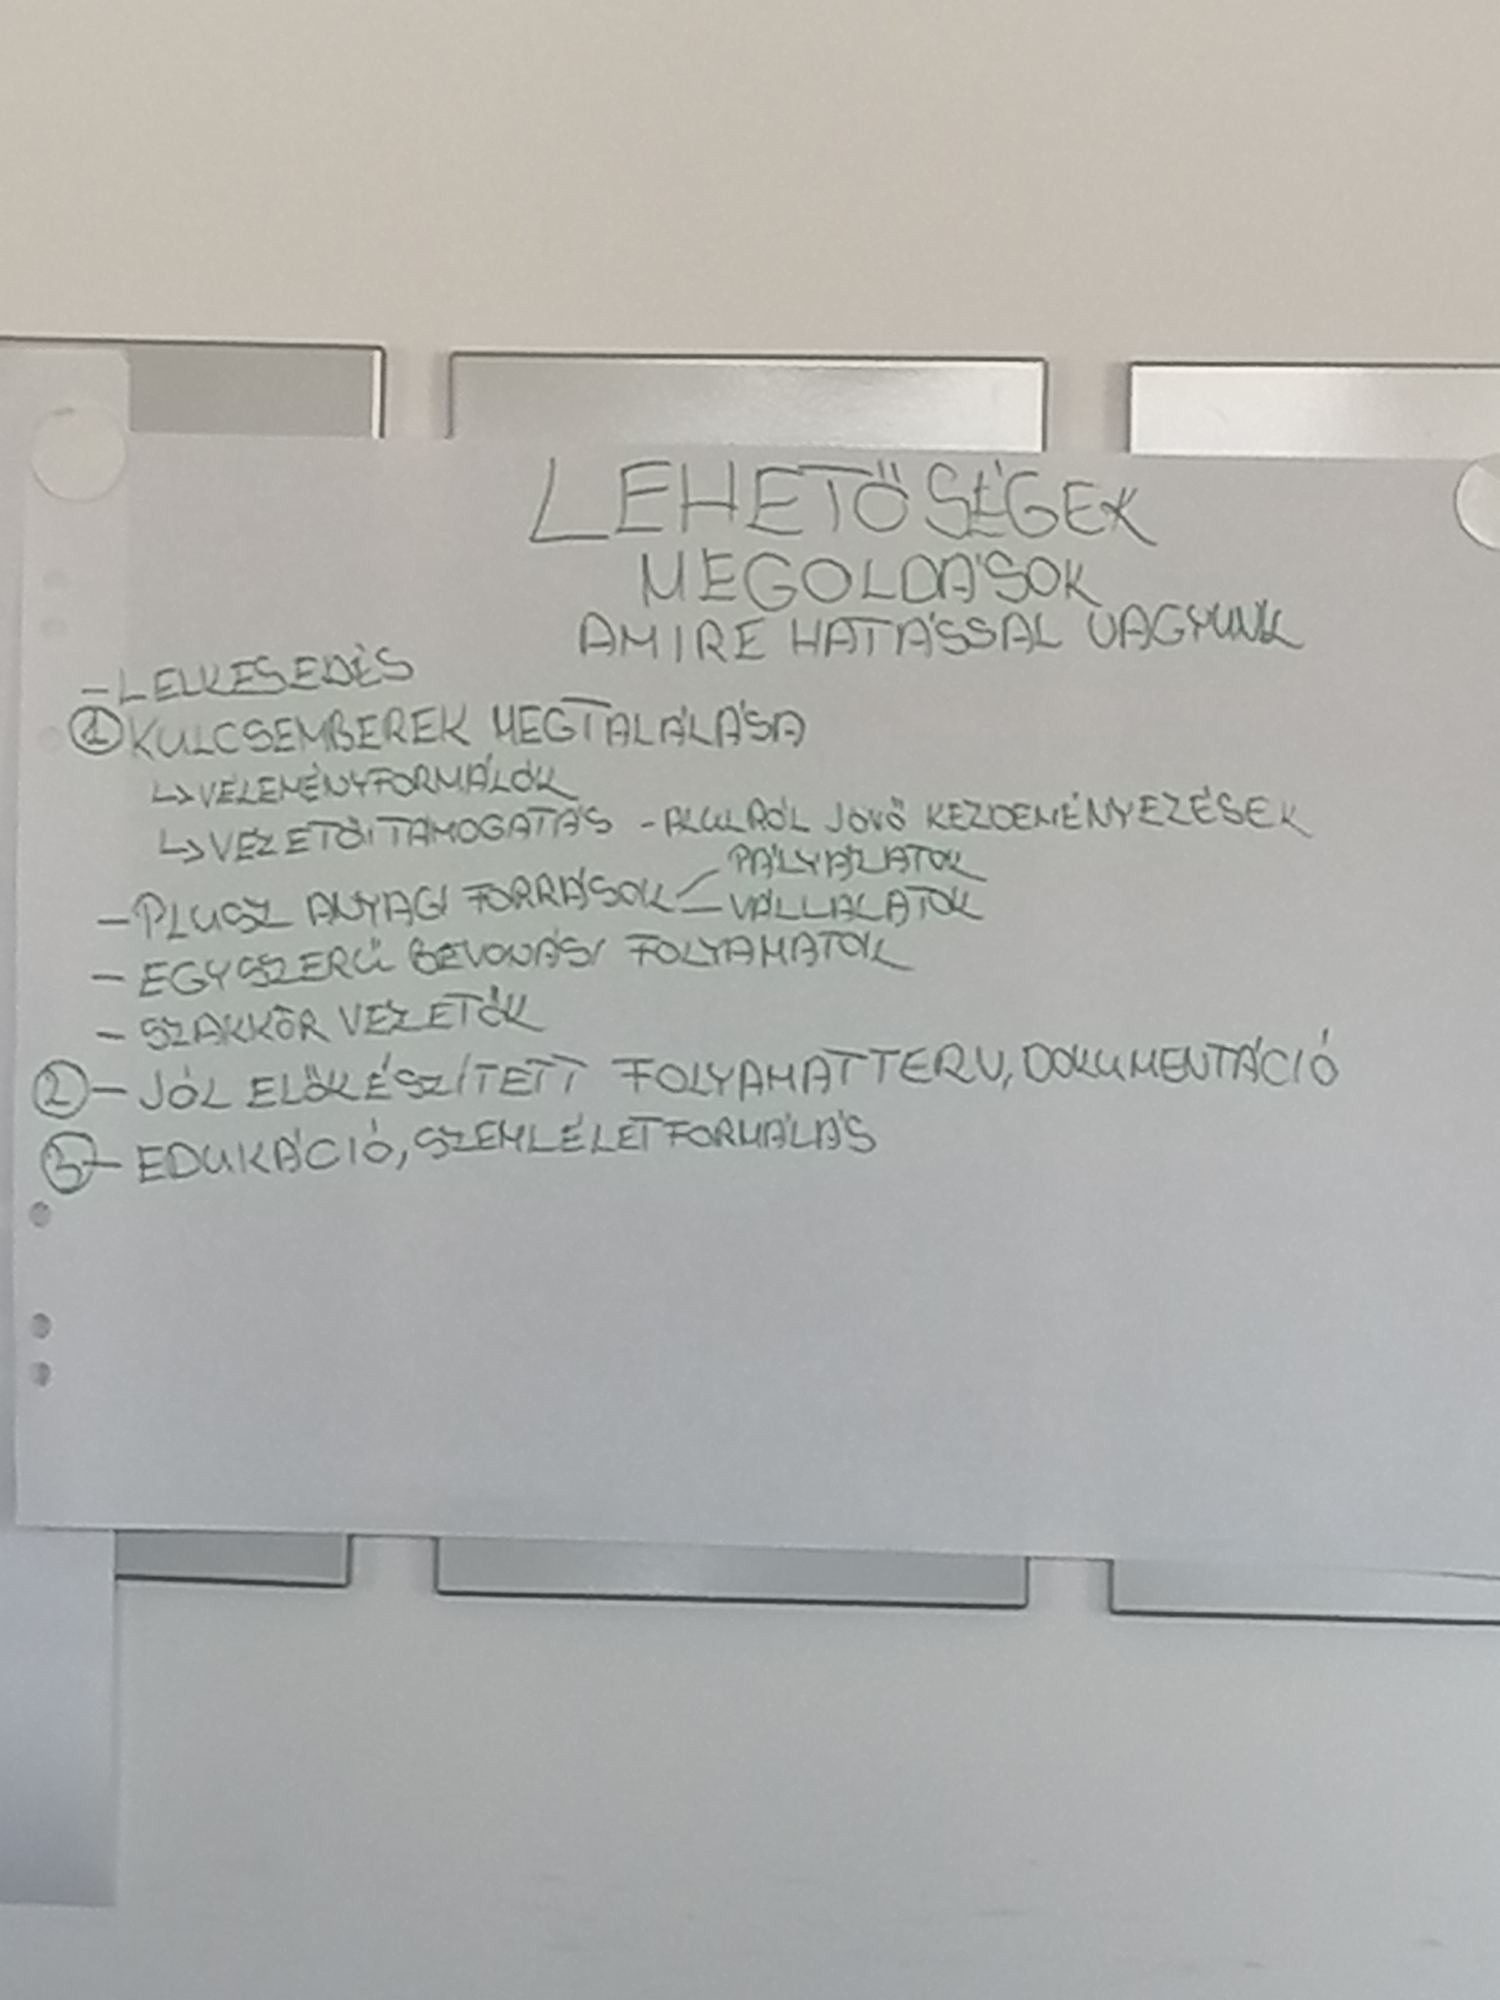 LEHETŐSÉGEK
MEGOLDÁSOK
AMIRE HATÁSSAL VAGYUNK
- LELKESEDÉS
① KULCSEMBEREK MEGTALÁLÁSA
↳ VÉLEMÉNYFORMÁLÓK
↳ VEZETŐI TÁMOGATÁS - ALULRÓL JÖVŐ KEZDEMÉNYEZÉSEK
- PLUSZ ANYAGI FORRÁSOK < PÁLYÁZATOK
VÁLLALATOK
- EGYSZERŰ BEVONÁSI FOLYAMATOK
- SZAKKÖR VEZETŐK
② - JÓL ELŐKÉSZÍTETT FOLYAMATTERV, DOKUMENTÁCIÓ
③ - EDUKÁCIÓ, SZEMLÉLETFORMÁLÁS